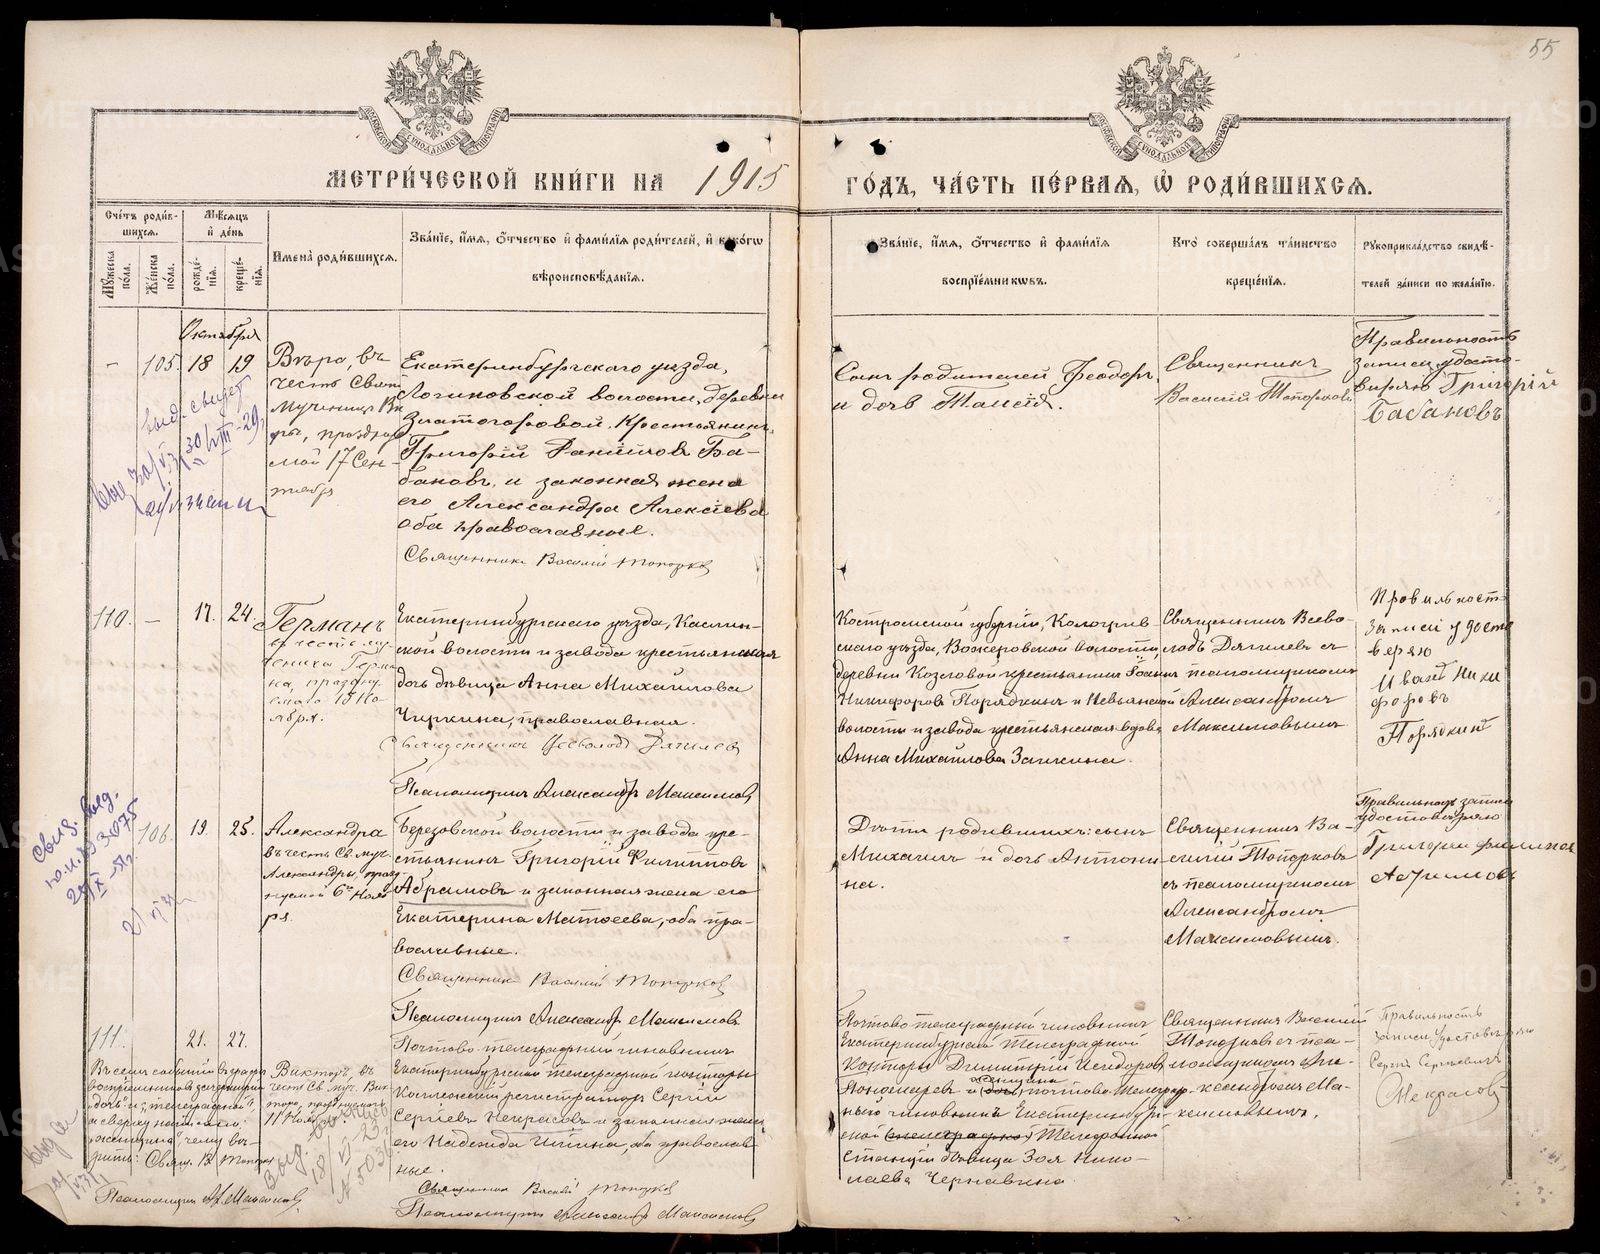 55
МЕТРИ́ЧЕСКОЙ КНИ́ГИ НА 1915 ГО́ДЪ, ЧА́СТЬ ПЕ́РВАЯ, Ѡ҆ РОДИ́ВШИХСЯ.
Сче́тъ роди́в-
шихся.
Мꙋ́жеска по́ла.
Же́нска по́ла.
Мѣ́сяцъ и҆ де́нь
рожде́-
нїѧ.
креще́-
нїѧ.
Имена̀ роди́вшихся.
Зва́нїе, и҆́мя, ѻ҆́тчество и҆ фами́лїя роди́телей, и҆ како́гѡ
вѣроисповѣ́данїя.
Зва́нїе, и҆́мя, ѻ҆́тчество и҆ фами́лїя
воспрїе́мникѡвъ.
Кто̀ соверша́лъ та́инство
креще́нїя.
Рꙋкоприкла́дство свидѣ́-
телей за́писи по жела́нїю.
Октября
– 105. 18 19
Вѣра, въ
честь Свят.
Мученицы Вѣ
ры, праздн
мой 17 Сен-
тября
Екатеринбургскаго уѣзда,
Логиновской волости, деревни
Златогоровой. Крестьянинъ
Григорій Даніиловъ Ба-
бановъ, и законная жена
его Александра Алексіева
оба православные.
Священникъ Василій Топорковъ
Сынъ родителей Феодоръ
и дочь Таисія.
Священникъ
Василій Топорковъ
Правильность
записи удосто-
веряю Григорій
Бабановъ
110. – 17. 24.
Германъ
въ честь му-
ченика Герма
на, праздну
емаго 13 Но-
ября.
Екатеринбургскаго уѣзда, Каслин-
ской волости и завода крестьянская
дочь дѣвица Анна Михайлова
Чиркина, православная.
Священникъ Всеволодъ Дягилевъ
Псаломщикъ Александръ Максимовъ
Костромской губерніи, Кологрив-
скаго уѣзда, Вожеровской волости,
деревни Козловой крестьянинъ Іоаннъ
Никифоровъ Порядкинъ и Невьянской
волости и завода крестьянская вдова
Анна Михайлова Заикина.
Священникъ Всево-
лодъ Дягилевъ съ
псаломщикомъ
Александромъ
Максимовымъ
Правильность
записи удосто
веряю
Иванъ Ники
форовъ
Порядкинъ
106. 19. 25.
Александра
въ честь Св. муч.
Александры, празд
нуемой 6го Нояб
ря.
Березовской волости и завода кре-
стьянинъ Григорій Филипповъ
Абрамовъ и законная жена его
Екатерина Матѳеева, оба пра-
вославные.
Священникъ Василій Топорковъ
Псаломщикъ Александръ Максимовъ
Дѣти родившихъ: сынъ
Михаилъ и дочь Антони-
на.
Священникъ Ва-
силій Топорковъ
съ псаломщикомъ
Александромъ
Максимовымъ.
Правильность записи
удостоверяю
Григорий Филипов
Абрамовъ
Свид. выд.
21
111. 21. 27.
Викторъ, въ
честь Св. муч. Вик
тора, празднуемаго
11 Ноября.
Почтово-телеграфный чиновникъ
Екатеринбургской телеграфной конторы
Коллежскій регистраторъ Сергій
Сергіевъ Некрасовъ и законная жена
его Надежда Ильина, оба православ-
ные.
Священникъ Василій Топорковъ
Псаломщикъ Александръ Максимовъ
Почтово-телеграфный чиновникъ
Екатеринбургской телеграфной
конторы Димитрій Исидоровъ
Пономаревъ и почтово-телеграф-
наго чиновника Екатеринбург-
ской телефонной
станціи дѣвица Зоя Нико-
лаева Чернавина
Священникъ Василій
Топорковъ съ пса-
ломщикомъ Але-
ксандромъ Ма-
ксимовымъ.
Правильность
записи удостовѣряю
Сергій Сергѣевичъ
Некрасовъ
Псаломщикъ Ал. Максимовъ.